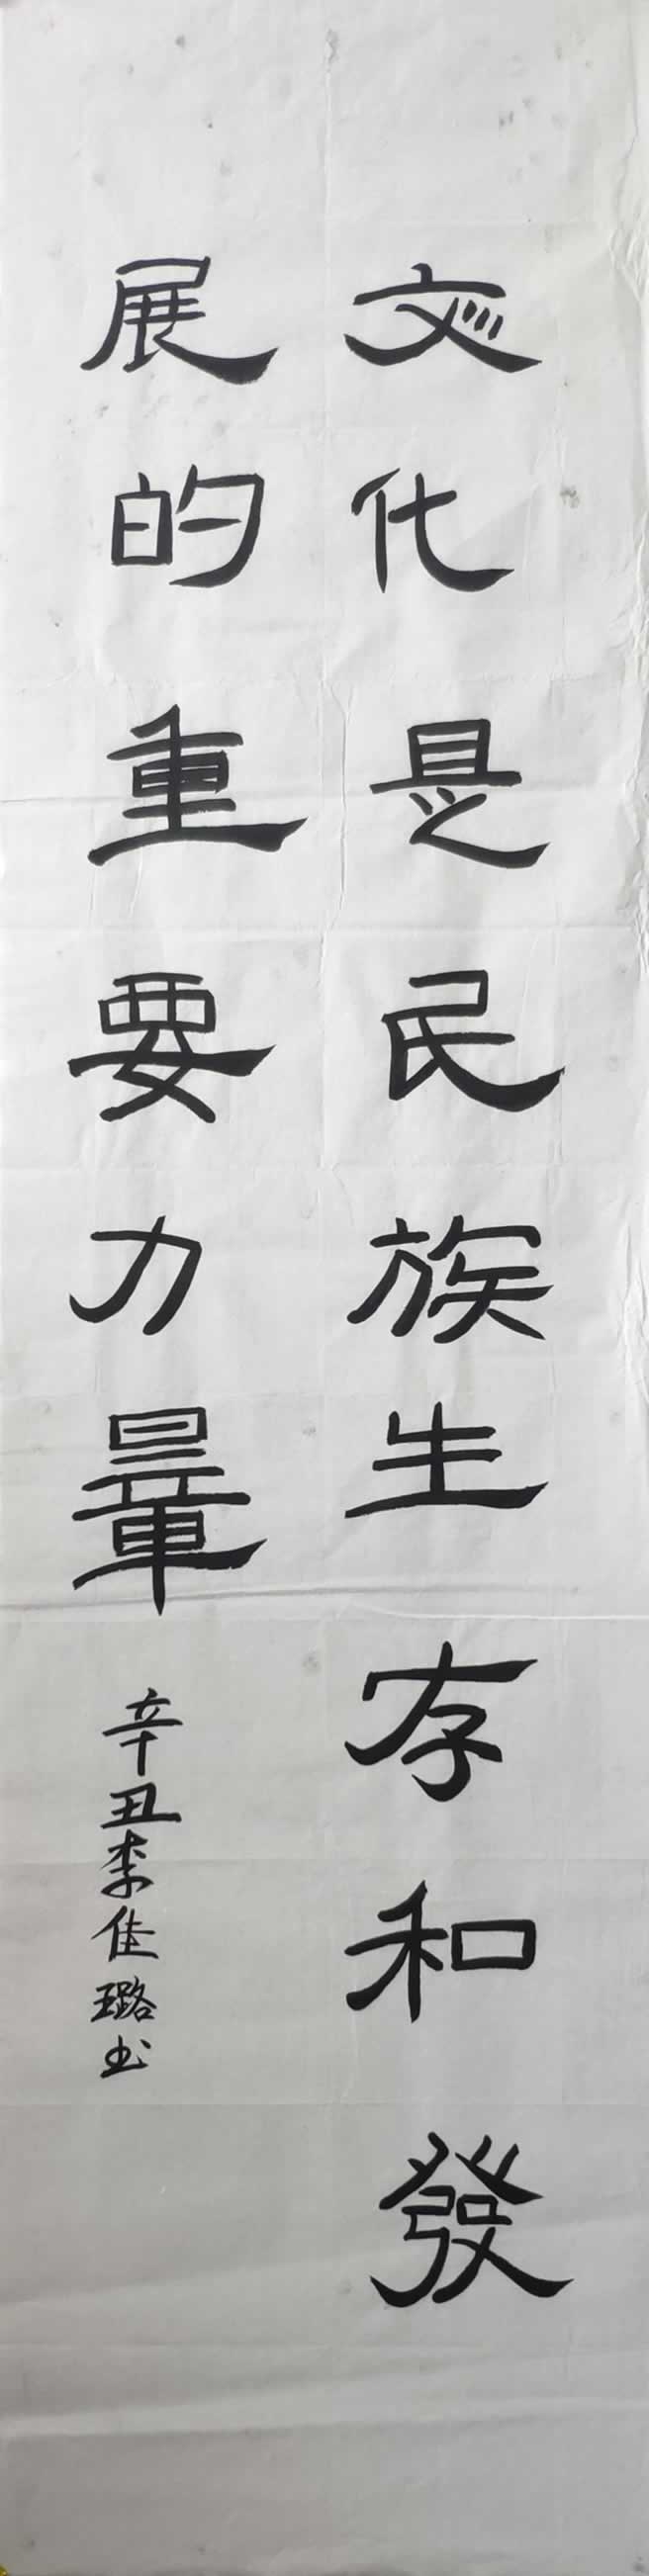 文化是民族生存和發
展的重要力量
辛丑李佳璐书